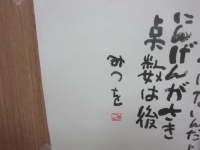 ないんだ
にんげんがさき
点数は後
みつを